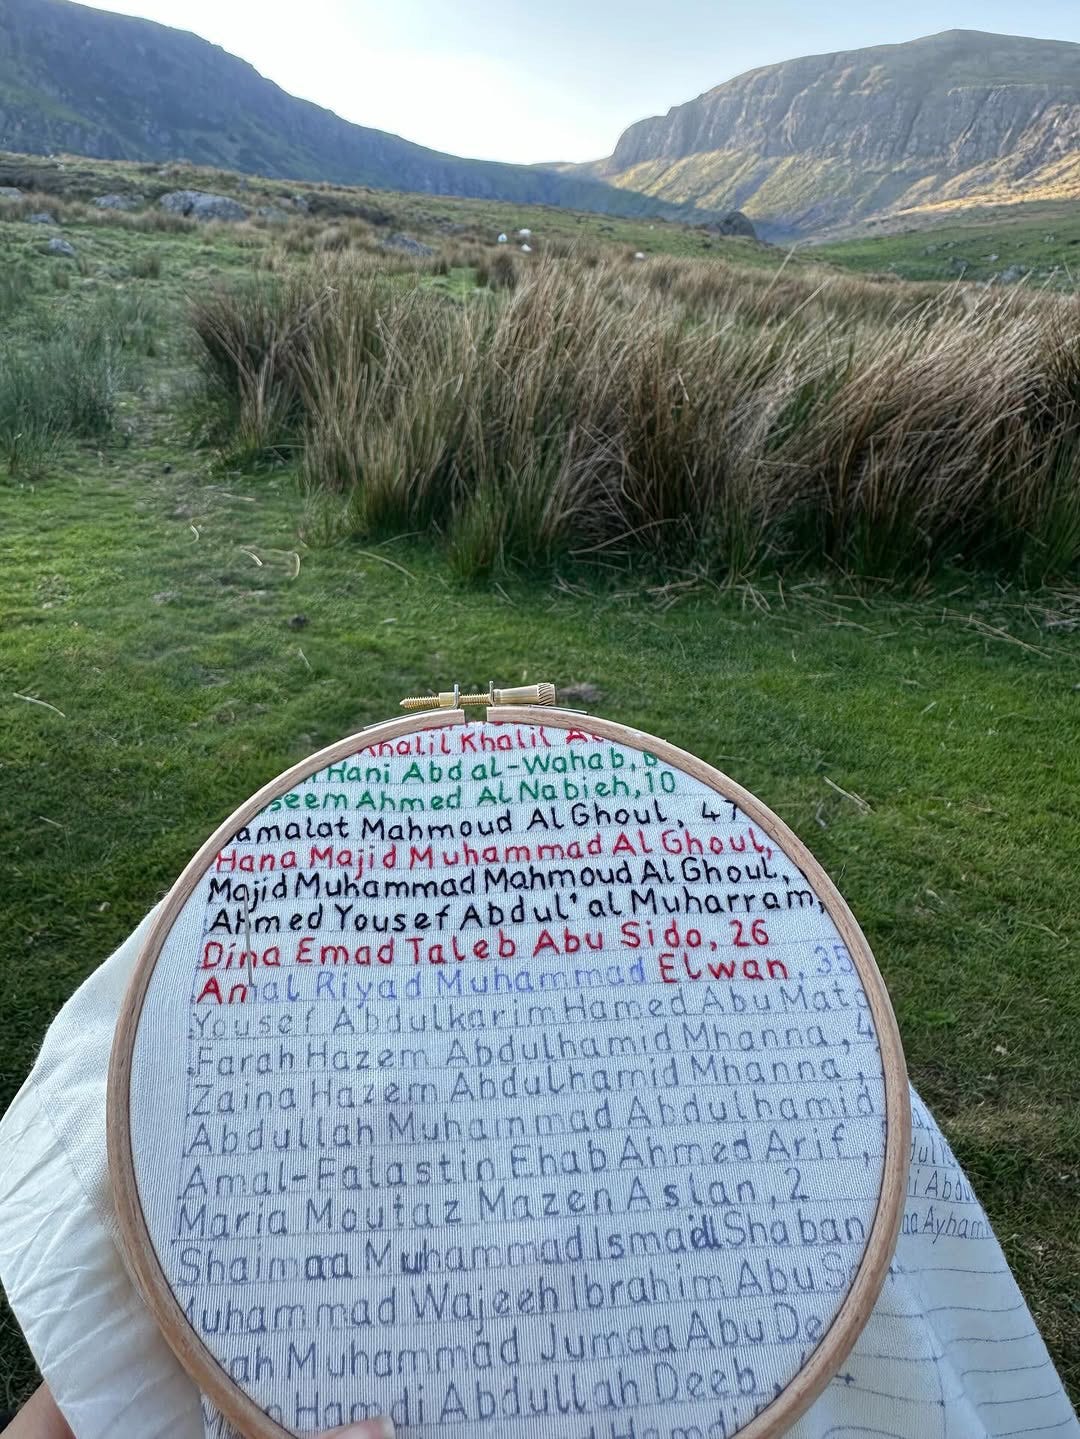 Khalil Khalil
Hani Abd al-Wahab,
Ahmed Al Nabieh, 10
Mahmoud Al Ghoul, 47
Hana Majid Muhammad Al Ghoul,
Majid Muhammad Mahmoud Al Ghoul,
Ahmed Yousef Abdul'al Muharram,
Dina Emad Taleb Abu Sido, 26
Amal Riyad Muhammad Elwan, 35
Yousef Abdulkarim Hamed Abu
Farah Hazem Abdulhamid Mhanna, 4
Zaina Hazem Abdulhamid Mhanna,
Abdullah Muhammad Abdulhamid
Amal-Falastin Ehab Ahmed Arif,
Maria Moutaz Mazen Aslan, 2
Shaimaa Muhammad Ismail Shaban
Wajeeh Ibrahim Abu
Muhammad Jumaa Abu
Hamdi Abdullah Deeb,
Hamdi